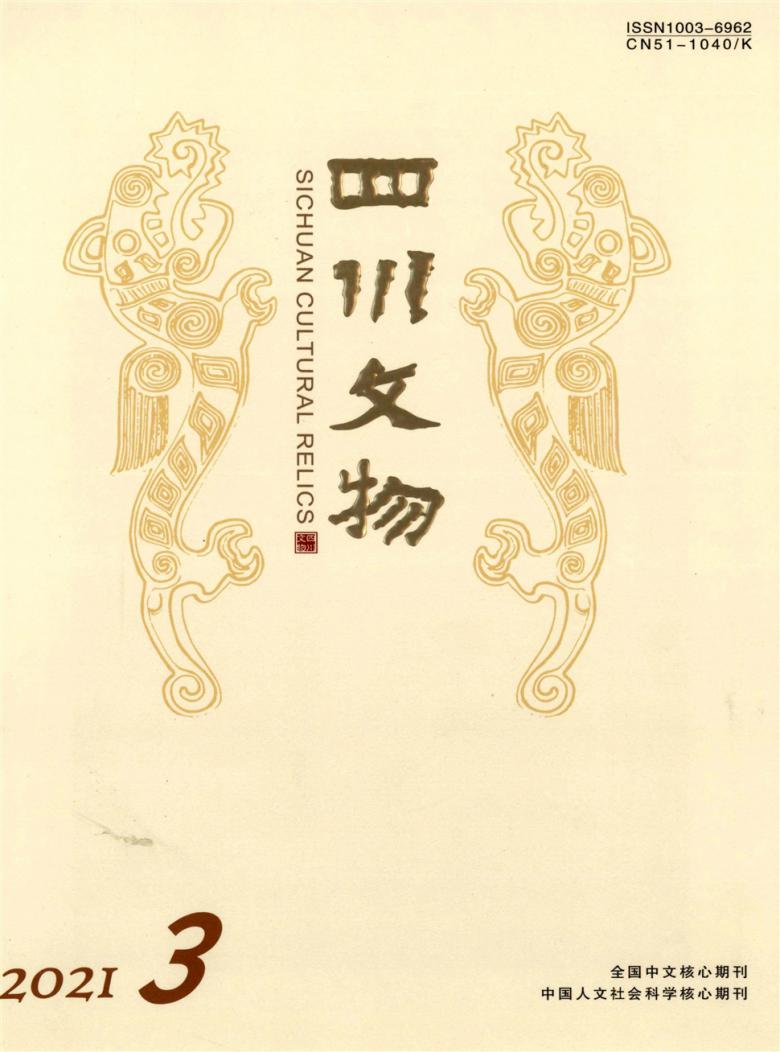 ISSN1003-6962
CN51-1040/K
四川文物
SICHUAN CULTURAL RELICS
四川文物
2021 3
全国中文核心期刊
中国人文社会科学核心期刊